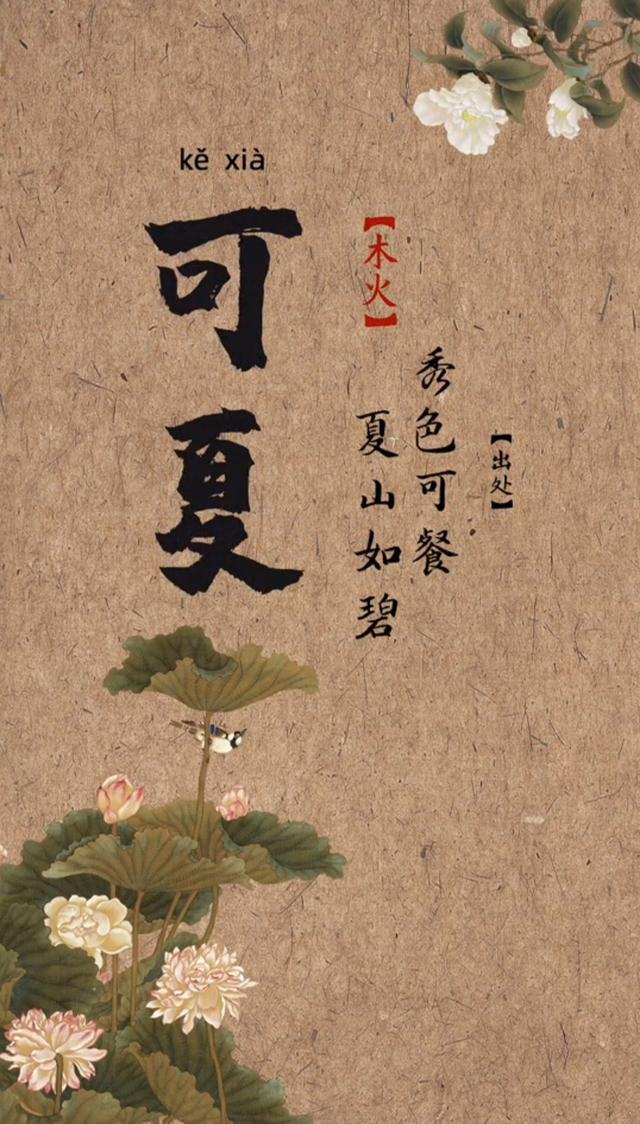 kě xià
可夏
【木火】
【出处】
秀色可餐
夏山如碧